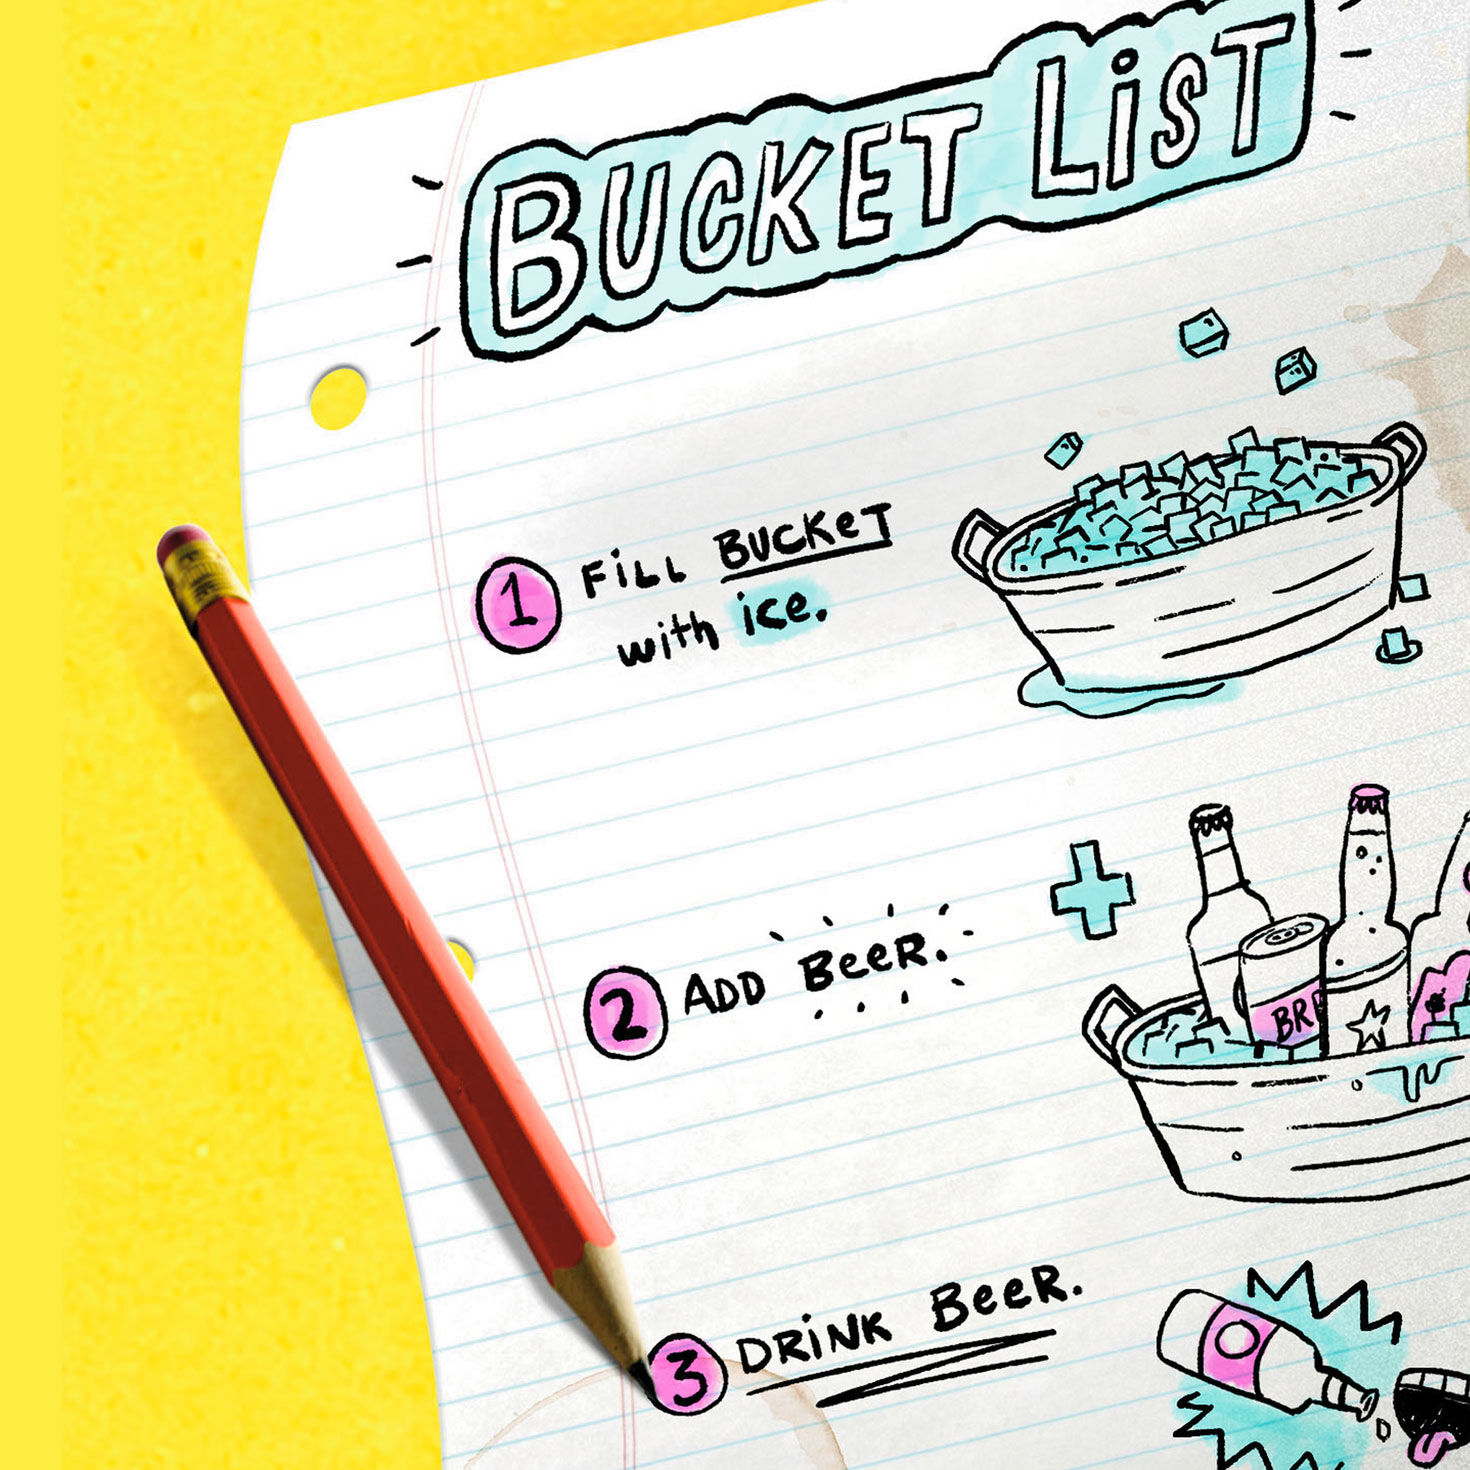 BUCKET LiST
1 FiLL BUCKeT
with ice.
2 ADD BeeR.
BR
3 DRiNK BeeR.